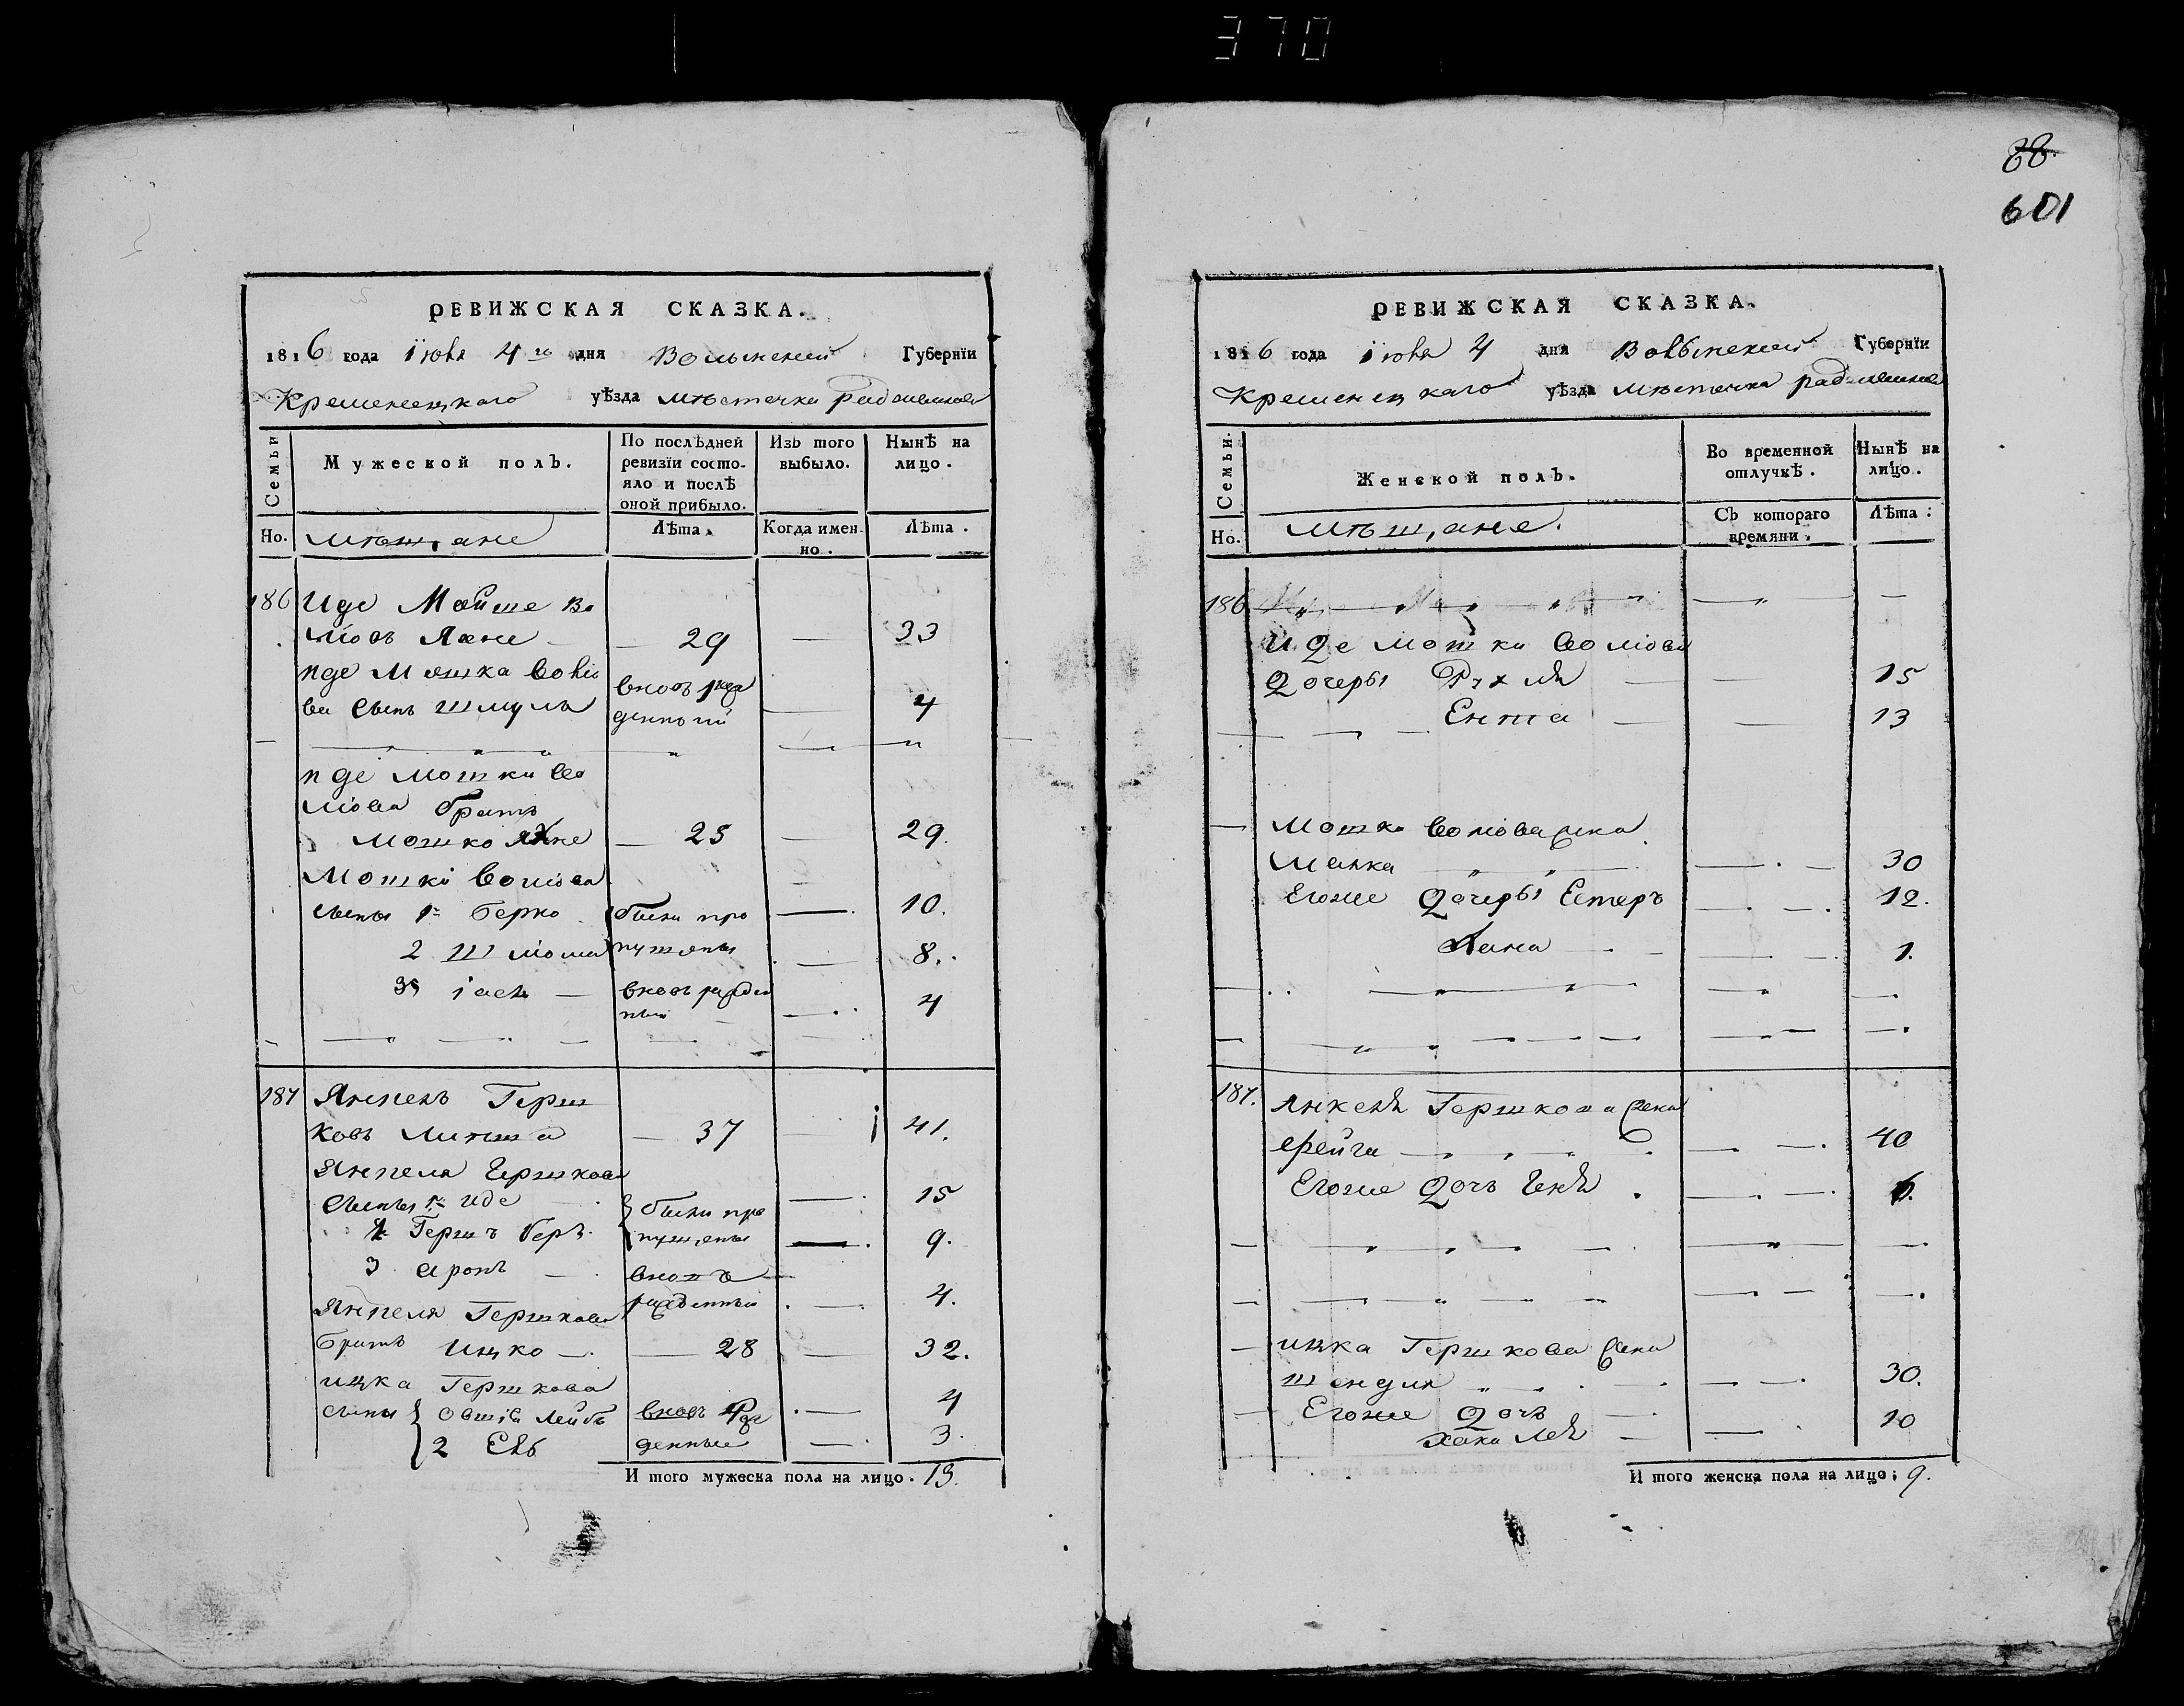 370
88.
601
РЕВИЖСКАЯ СКАЗКА.
1816 года Iюня 4го дня Волынской Губернїи
Кременецкаго уѣзда мѣстечка
Семьи
Мужеской полъ.
По послѣдней ревизїи состо-
яло и послѣ
оной прибыло.
Изъ того выбыло.
Нынѣ на лицо.
Но.
мѣщане
Лѣта.
Когда имен-
но.
Лѣта.
186 Иде Мошко Во
лїовъ — 29 — 33
Иде Мошка Волїо
ва сынъ Шмуль вновь рож
денный — 4
Иде Мошки Во
лїова братъ
Мошко — 25 — 29.
Мошки Волїова
сыны 1й Берко были про — 10.
2 Шлїома пущены — 8.
3й вновь рожден
ный — 4
187 Янкель Герш
ковъ — 37 — 41.
Янкеля Гершкова
сыны 1й Иде были про — 15
Гершъ Беръ пущены — 9.
3 Аронъ — вновь
рожденный — 4.
Янкеля Гершкова
братъ Ицко — 28 — 32.
Ицка Гершкова
сыны Овшїя Лейбъ вновь рож — 4
2 Ель денные — 3.
И того мужеска пола на лицо. 13.
РЕВИЖСКАЯ СКАЗКА.
1816 года Iюня 4 дня Волынской Губернїи
Кременецкаго уѣзда мѣстечка
Семьи.
Женской полъ.
Во временной
отлучкѣ.
Нынѣ на
лицо.
Но.
мѣщане.
Съ котораго
времяни.
Лѣта:
186
Иде Мошки Волїова
дочеры Рухля — 15
Ента — 13
— Мошка Волїова жена
Малка — 30
Егоже дочеры Естеръ — 12.
Хана — 1.
187. Янкеля Гершкова жена
Фейга — 40
Егоже дочь Геня — 6.
— Ицка Гершкова жена
Шендля — 30.
Егоже дочь — 10
Хана Лея —
И того женска пола на лицо; 9.